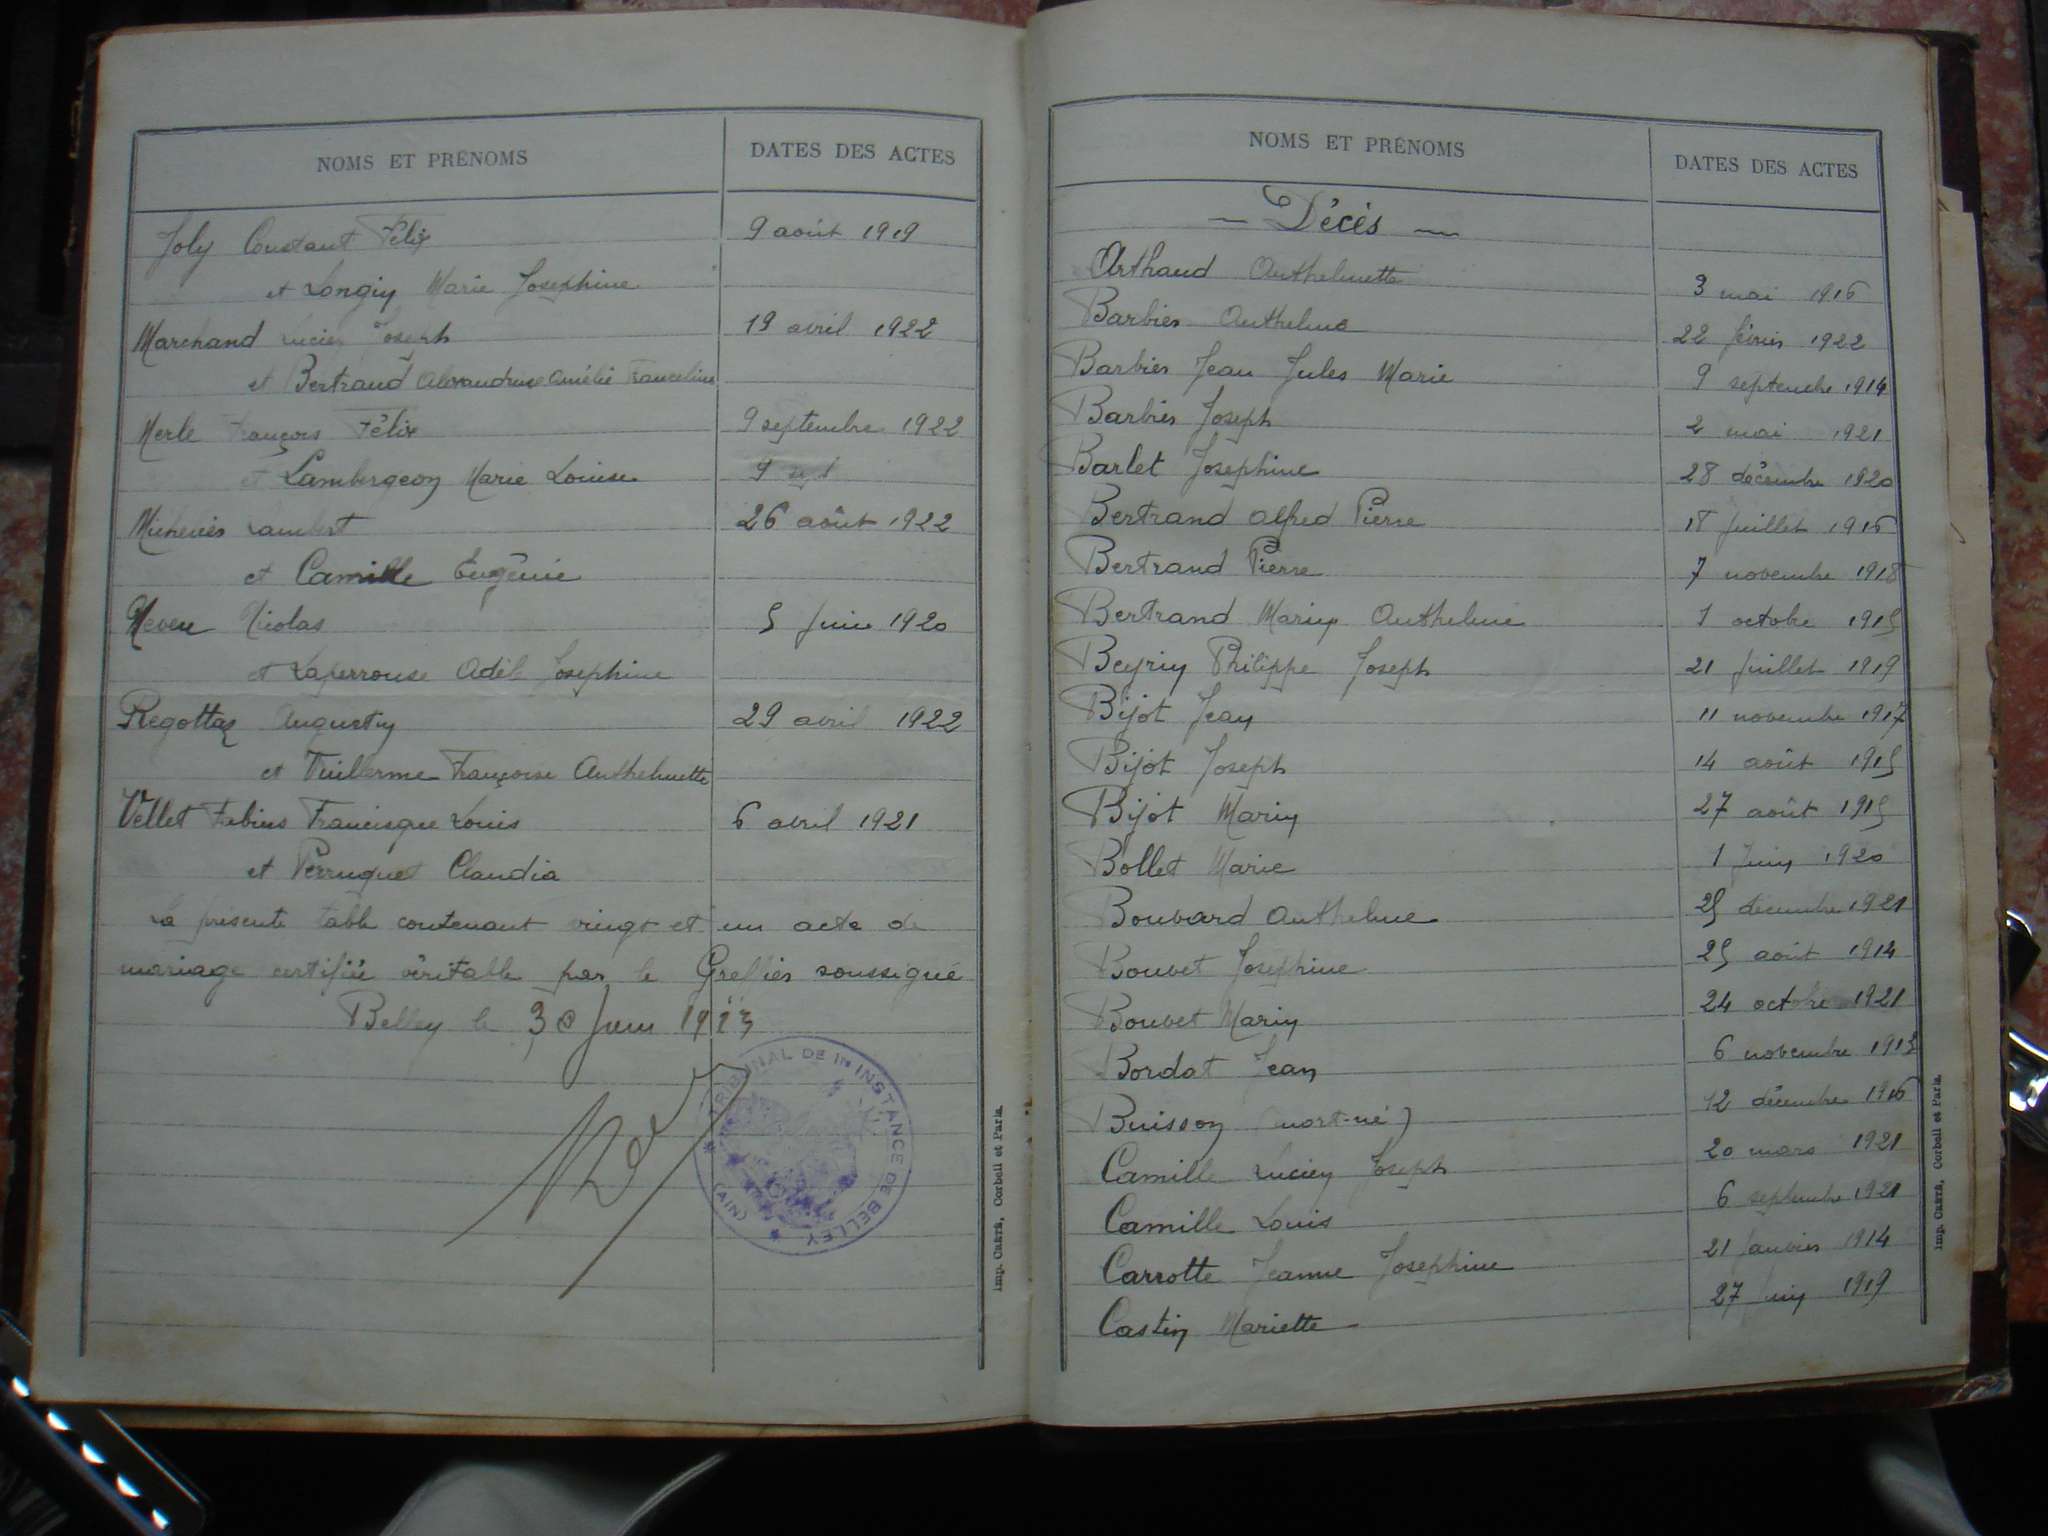 NOMS ET PRÉNOMS DATES DES ACTES
Joly Constant Félix 9 août 1919
et Longin Marie Josephine
Marchand Lucien Joseph 19 avril 1922
et Bertrand Alexandrine Amélie Franceline
Merle François Félix 9 septembre 1922
et Lambergeon Marie Louise 9
Lambert 26 août 1922
et Camille Eugénie
Neveu Nicolas 5 Juin 1920
et Laperrouse Adèle Josephine
Regottaz Augustin 29 avril 1922
et Tuillerme Françoise Anthelmette
Vellet Francisque Louis 6 avril 1921
et Perruquet Claudia
La présente table contenant vingt et un acte de
mariage certifiée véritable par le Greffier soussigné
Belley le 30 Juin 1923
TRIBUNAL DE 1re INSTANCE DE BELLEY
(AIN)
Imp. CRÉTÉ, Corbeil et Paris.
NOMS ET PRÉNOMS DATES DES ACTES
Décès
Arthaud Anthelmette 3 mai 1916
Barbier Anthelme 22 février 1922
Barbier Jean Jules Marie 9 septembre 1914
Barbier Joseph 2 mai 1921
Barlet Josephine 28 décembre 1920
Bertrand Alfred Pierre 18 Juillet 1916
Bertrand Pierre 7 novembre 1918
Bertrand Marin Anthelme 1 octobre 1915
Beyrin Philippe Joseph 21 Juillet 1919
Bijot Jean 11 novembre 1917
Bijot Joseph 14 août 1915
Bijot Marin 27 août 1915
Bollet Marie 1 Juin 1920
Bouvard Anthelme 25 décembre 1921
Bouvet Josephine 25 août 1914
Bouvet Marin 24 octobre 1921
Bordat Jean 6 novembre 1915
Buisson (mort-né) 12 décembre 1916
Camille Lucien Joseph 20 mars 1921
Camille Louis 6 septembre 1921
Carrotte Jeanne Josephine 21 Janvier 1914
Castin Mariette 27 Juin 1919
Imp. CRÉTÉ, Corbeil et Paris.